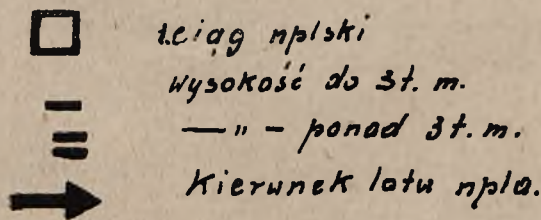 1.ciąg nplski
Wysokość do 3t. m.
— " — ponad 3t. m.
Kierunek lotu npla.